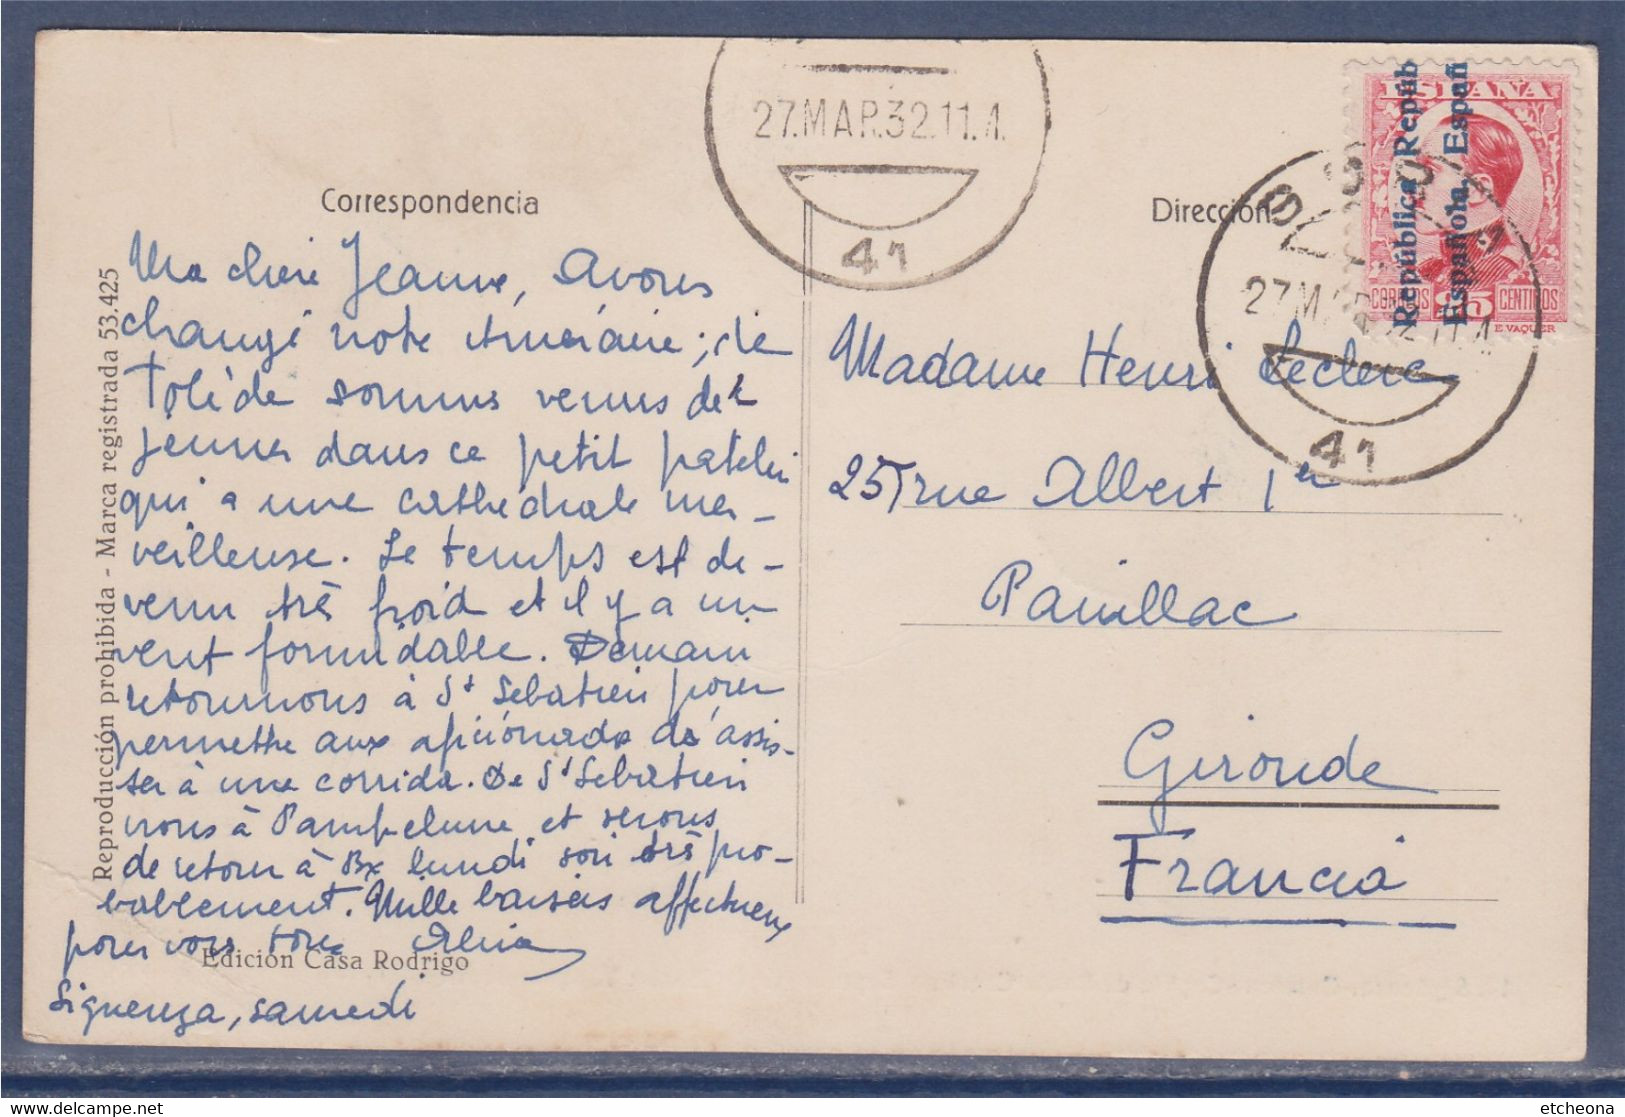 Correspondencia
Dirección
27.MAR.32.11.
41
27M
41
ESPAÑA
República Repúb
Española, Españ
CORREOS 25 CENTIMOS
E. VAQUER
Reproducción prohibida - Marca registrada 53.425
Ma chère Jeanne, Avons
changé notre itinéraire ; de
Tolède sommes venus
dans ce petit patelin
qui a une cathédrale mer-
veilleuse. Le temps est de-
venu très froid et il y a un
vent formidable. Demain
retournons à St Sébastien pour
permettre aux aficionados d'assis-
ter à une corrida. De St Sébastien
irons à Pampelune et serons
de retour à Bx lundi soir très pro-
bablement. Mille baisers affectueux
pour vous tous
Edición Casa Rodrigo
Siguenza, samedi
Madame Henri Leclerc
25, rue Albert 1er
Pauillac
Gironde
Francia
etcheona